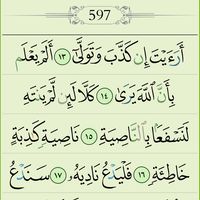 597
أَرَءَيْتَ إِن كَذَّبَ وَتَوَلَّىٰٓ ١٣ أَلَمْ يَعْلَم
بِأَنَّ ٱللَّهَ يَرَىٰ ١٤ كَلَّا لَئِن لَّمْ يَنتَهِ
لَنَسْفَعًۢا بِٱلنَّاصِيَةِ ١٥ نَاصِيَةٍ كَٰذِبَةٍ
خَاطِئَةٍ ١٦ فَلْيَدْعُ نَادِيَهُۥ ١٧ سَنَدْعُ